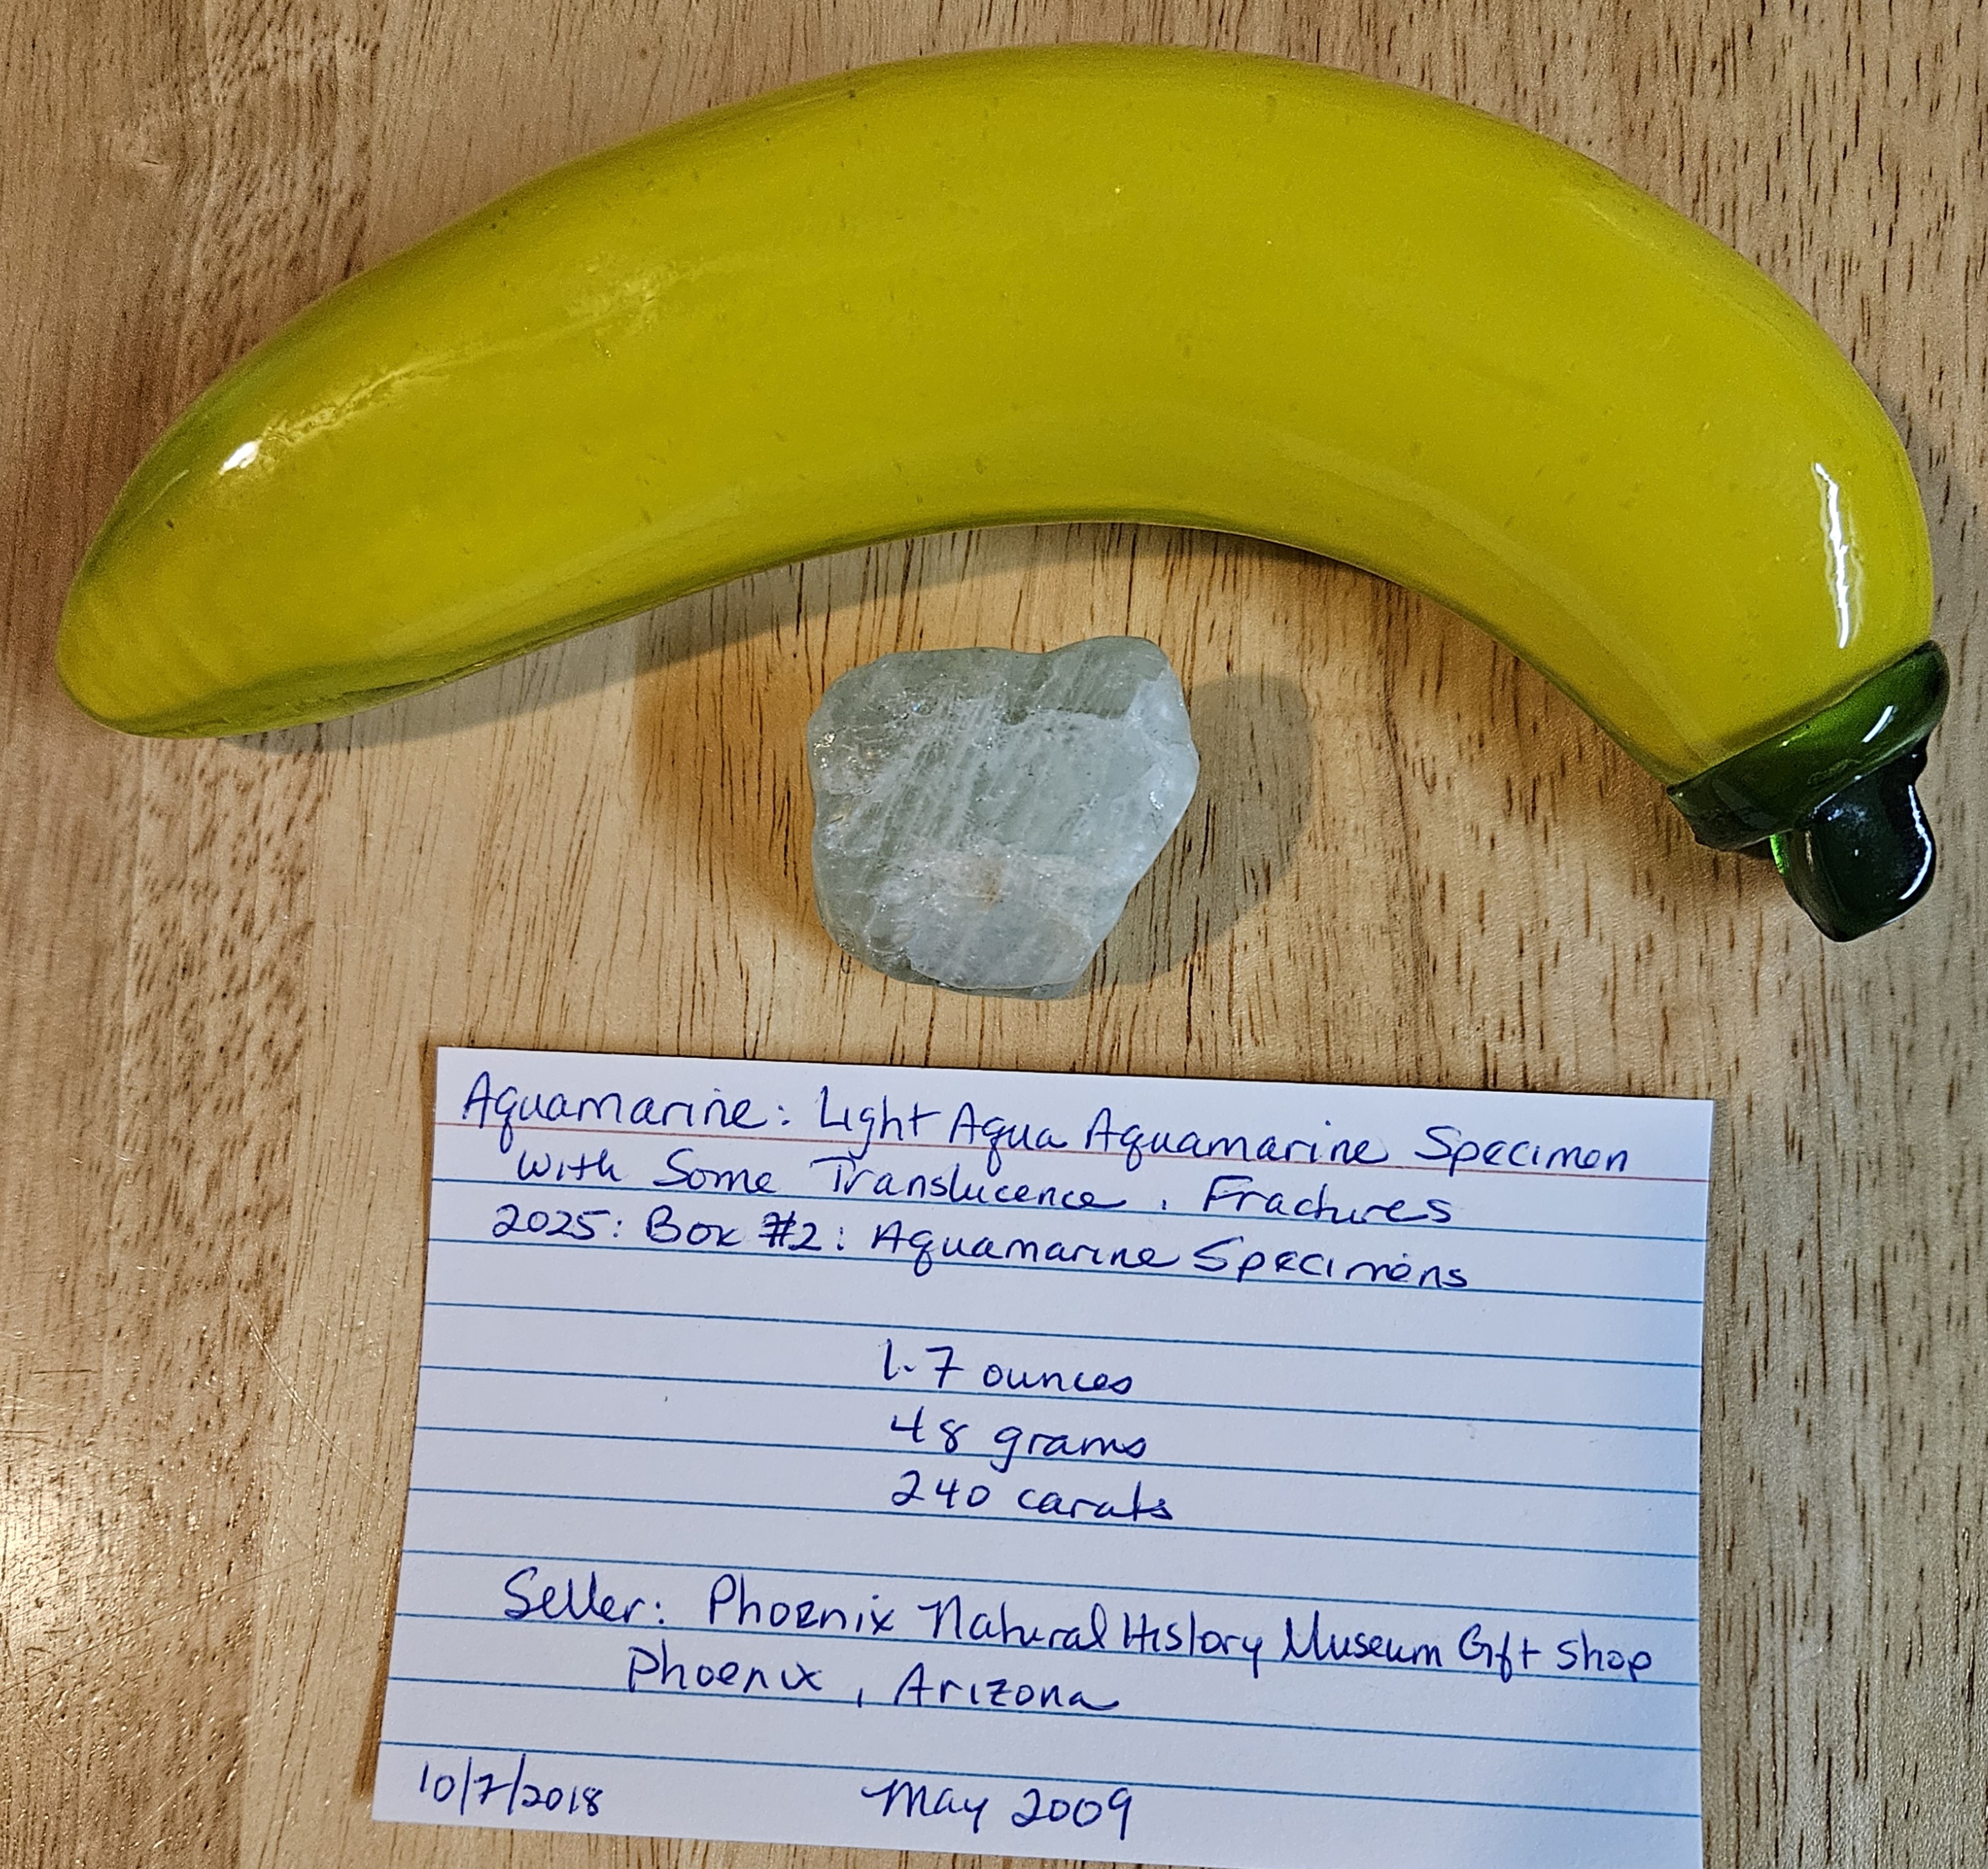 Aquamarine: Light Aqua Aquamarine Specimen
with Some Translucence, Fractures
2025: Box #2: Aquamarine Specimens
1.7 ounces
48 grams
240 carats
Seller: Phoenix Natural History Museum Gift Shop
Phoenix, Arizona
10/7/2018 May 2009